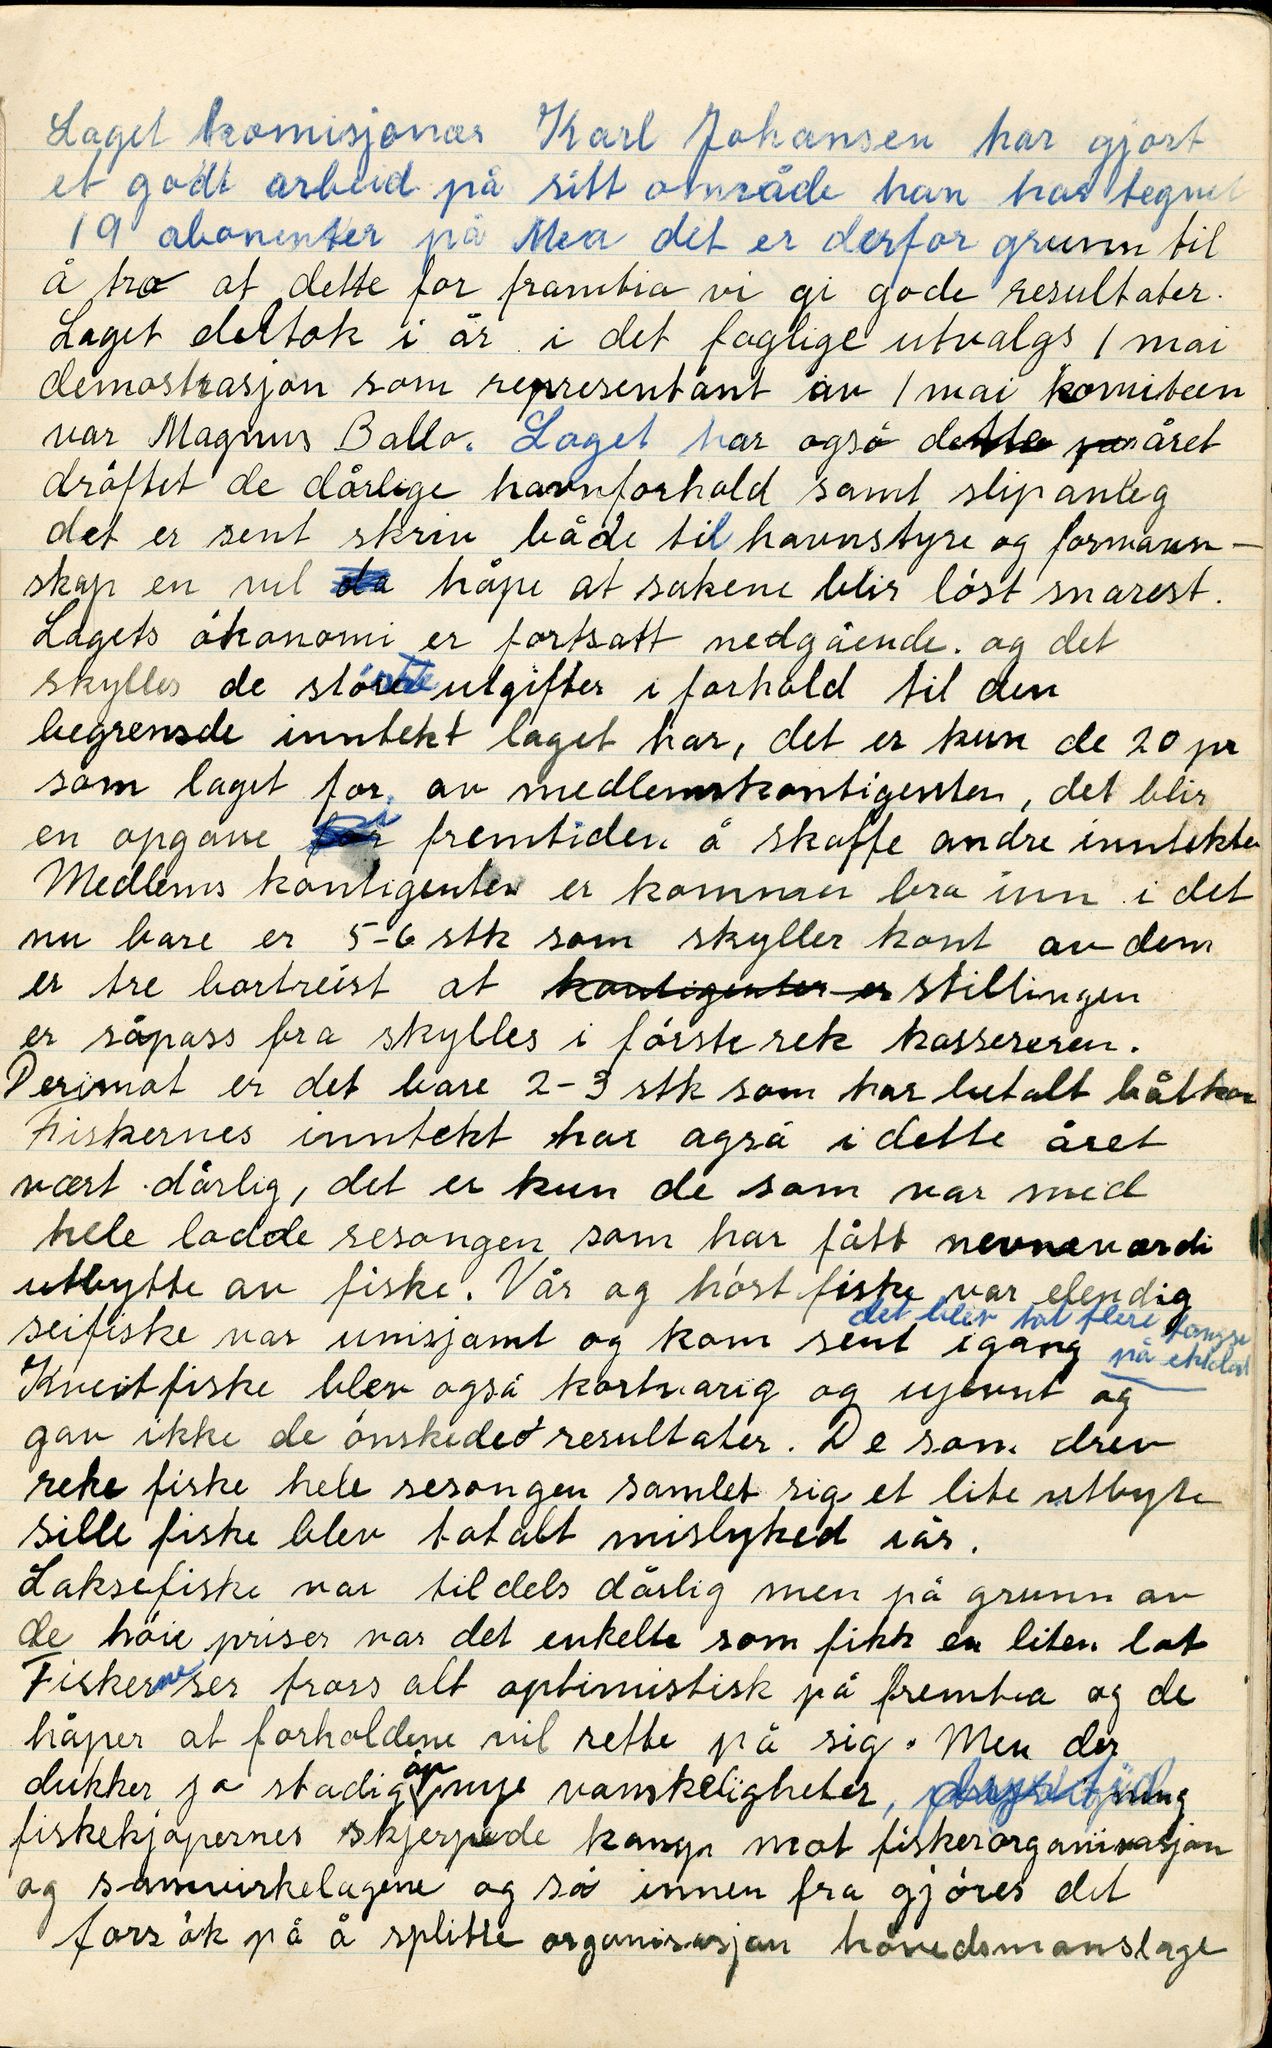 Laget komisjonær Karl Johansen har gjort
et godt arbeid på sitt område han har tegnet
19 abonenter på Mea det er derfor grunn til
å tro at dette for framtia vi gi gode resultater.
Laget deltok i år i det faglige utvalgs 1 mai
demostrasjon som representant av 1 mai komiteen
var Magnus Ballo. Laget har også dette året
dröftet de dårlige havnforhold samt slipanleg
det er sent skriv både til havnstyre og formann-
skap en vil da håpe at sakene blir löst snarest.
Lagets ökonomi er fortsatt nedgående. og det
skylles de störe utgifter i forhold til den
begrensde inntekt laget har, det er kun de 20 pr
som laget for av medlemskontigenten, det blir
en opgave for i fremtiden å skaffe andre inntekter
Medlems kontigenten er kommen bra inn i det
nu bare er 5-6 stk som skyller kont av dem
er tre bortreist at kontigenten er stillingen
er såpass bra skylles i förste rek kassereren.
Derimot er det bare 2-3 stk som har betalt båtkon
Fiskernes inntekt har også i dette året
vært dårlig, det er kun de som var med
hele lodde sesongen som har fått nevneværdi
utbytte av fiske. Vår og höst fiske var elendig
seifiske var umisjamt og kom sent igang
det blev tat flere fangse
på ekkelod
Kveitfiske blev også kortvarig og ujevnt og
gav ikke de önskede resultater. De som drev
reke fiske hele sesongen samlet sig et lite utbyte
sille fiske blev totalt mislyked iår.
Laksefiske var tildels dårlig men på grunn av
de höie priser var det enkelte som fikk en liten lot
Fiskerne ser tross alt optimistisk på fremtia og de
håper at forholdene vil rette på sig. Men der
dukker jo stadig op nye vanskeligheter,
fiskekjöpernes skjerpede kamp mot fiskerorganisasjon
og samvirkelagene og så innen fra gjöres det
forsök på å splitte organisasjon hövedsmanslage